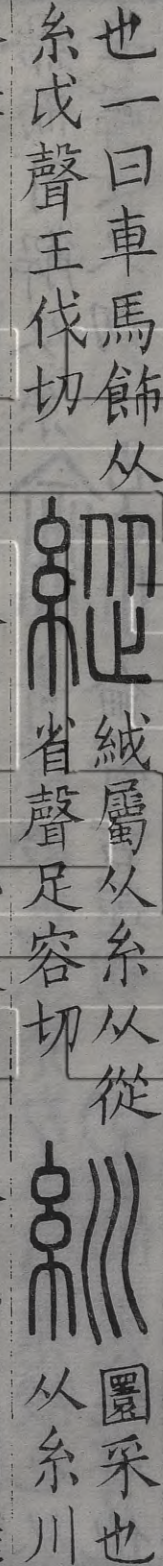 也一曰車馬飾从
糸戉聲王伐切
緃
䋐屬从糸从從
省聲足容切
紃
圜采也
从糸川